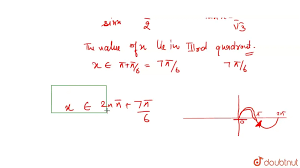 sinx 2̅ √3
The value of x lie in IIIrd quadrant.
x ∈ π+π/6 = 7π/6 7π/6
x ∈ 2nπ + 7π/6
0 π 2π